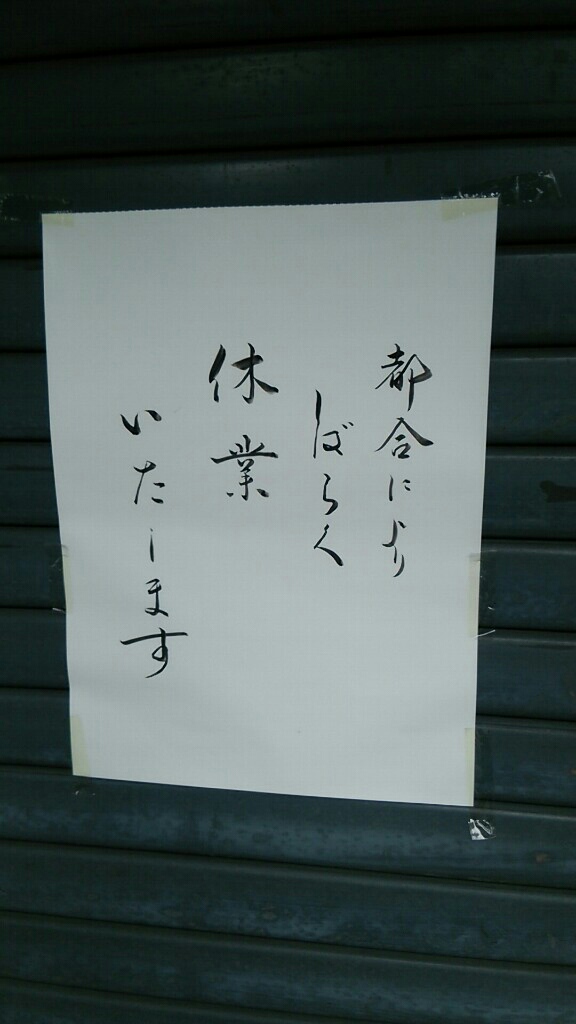 都合により
しばらく
休業
いたします